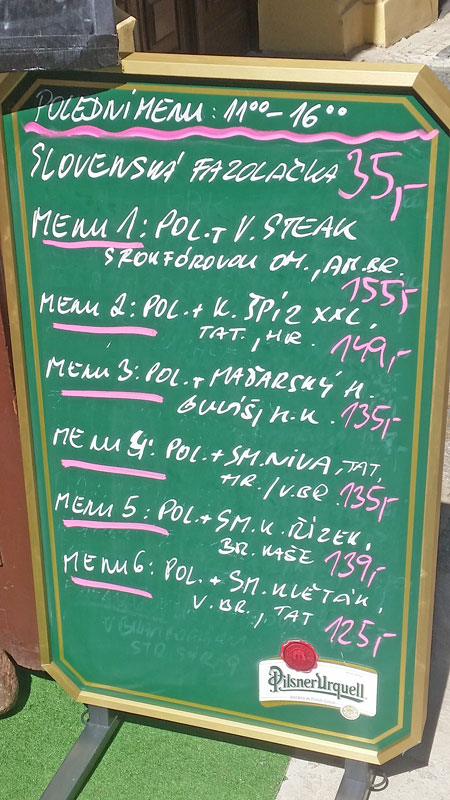 POLEDNÍ MENU: 11⁰⁰-16⁰⁰
SLOVENSKÁ FAZOLAČKA 35,-
MENU 1: POL.+ V. STEAK
S ROKFÓROVOU OM., AM.BR.
155,-
MENU 2: POL.+ K. ŠPÍZ XXL,
TAT., HR. 149,-
MENU 3: POL.+ MAĎARSKÝ H.
GULÁŠ, H.K. 135,-
MENU 4: POL.+ SM.NIVA, TAT,
HR./V.BR 135,-
MENU 5: POL.+ SM.K. ŘÍZEK,
BR. KAŠE 139,-
MENU 6: POL.+ SM.KVĚTÁK,
V.BR., TAT 125,-
Pilsner Urquell